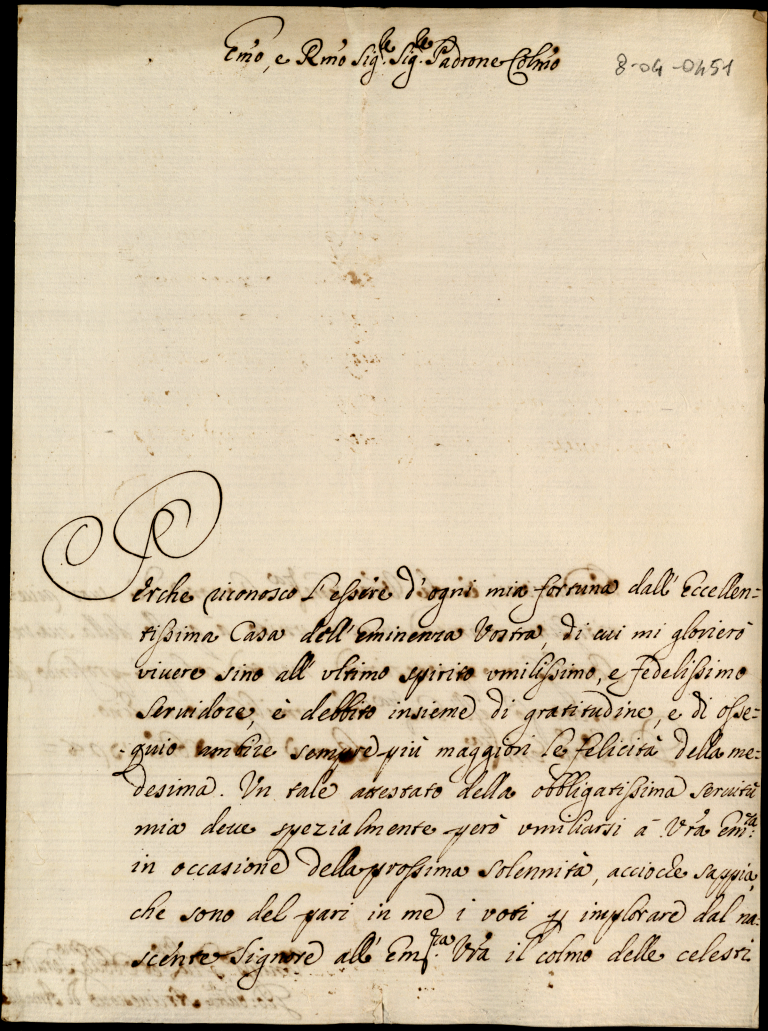 Emo, e Rmo Sig.re Sig.re Padrone Colmo
8-04-0451
Perche riconosco l'essere d'ogni mia fortuna dall'Eccellen=
tissima Casa dell'Eminenza Vostra, di cui mi glorierò
vivere sino all'vltimo spirito vmilissimo, e fedelissimo
servidore, è debbito insieme di gratitudine, e di osse=
quio sempre più maggiori le felicità della me=
desima. Vn tale attestato della obbligatissima servitù
mia deve spezialmente però vmiliarsi à Vra Em.za
in occasione della prossima solennità, acciocche sappia,
che sono del pari in me i voti p implorare dal na=
scente Signore all'Em.za Vra il colmo delle celesti